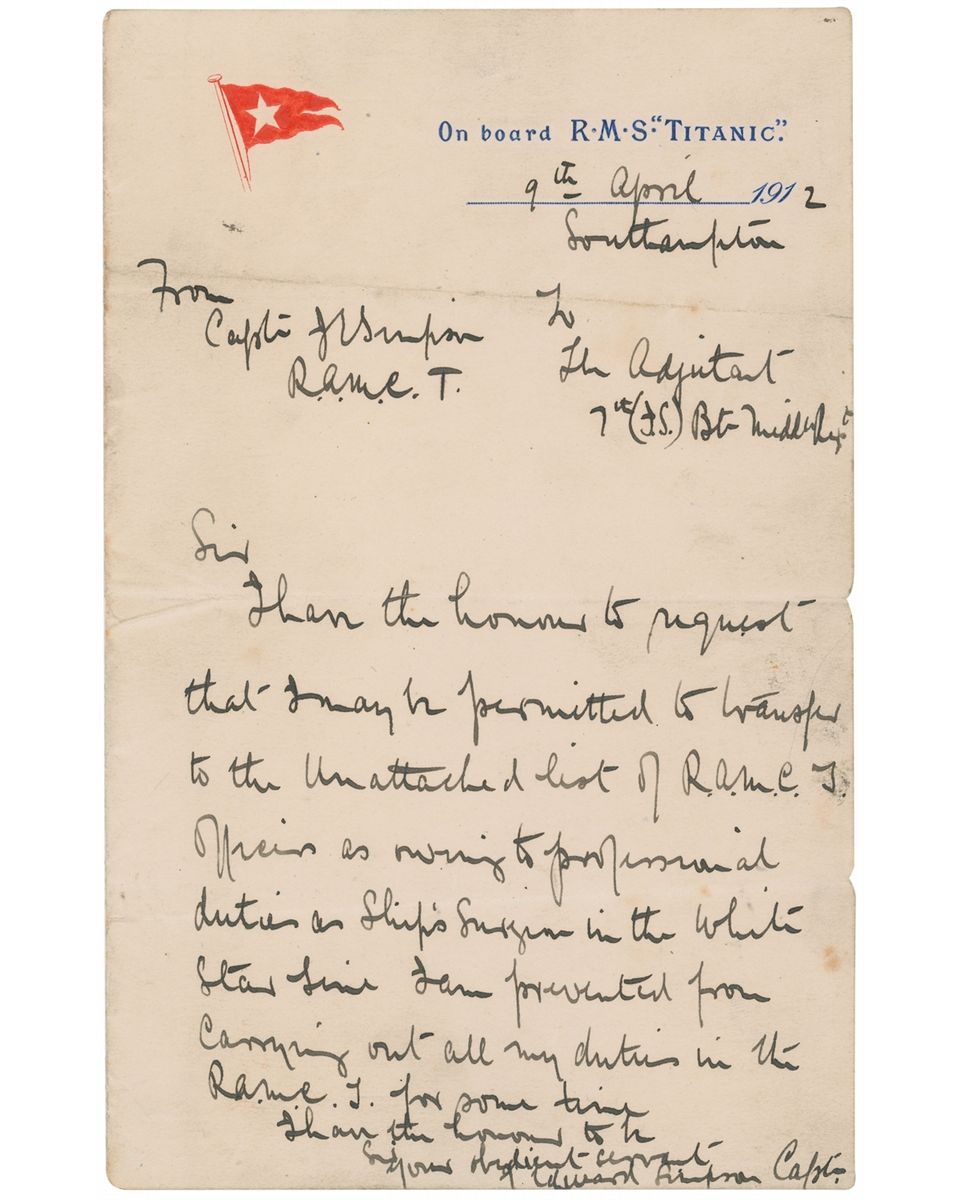 On board R·M·S· "TITANIC".
9th April 1912
Southampton
From
Captn J E Simpson
R.A.M.C. T.
To
The Adjutant
7th (F.S.) Btn Middx Regt
Sir
I have the honour to request
that I may be permitted to transfer
to the Unattached list of R.A.M.C. T.
officers as owing to professional
duties as Ship's Surgeon in the White
Star Line I am prevented from
carrying out all my duties in the
R.A.M.C. T. for some time
I have the honour to be
Sir
your obedient servant
J Edward Simpson Captn